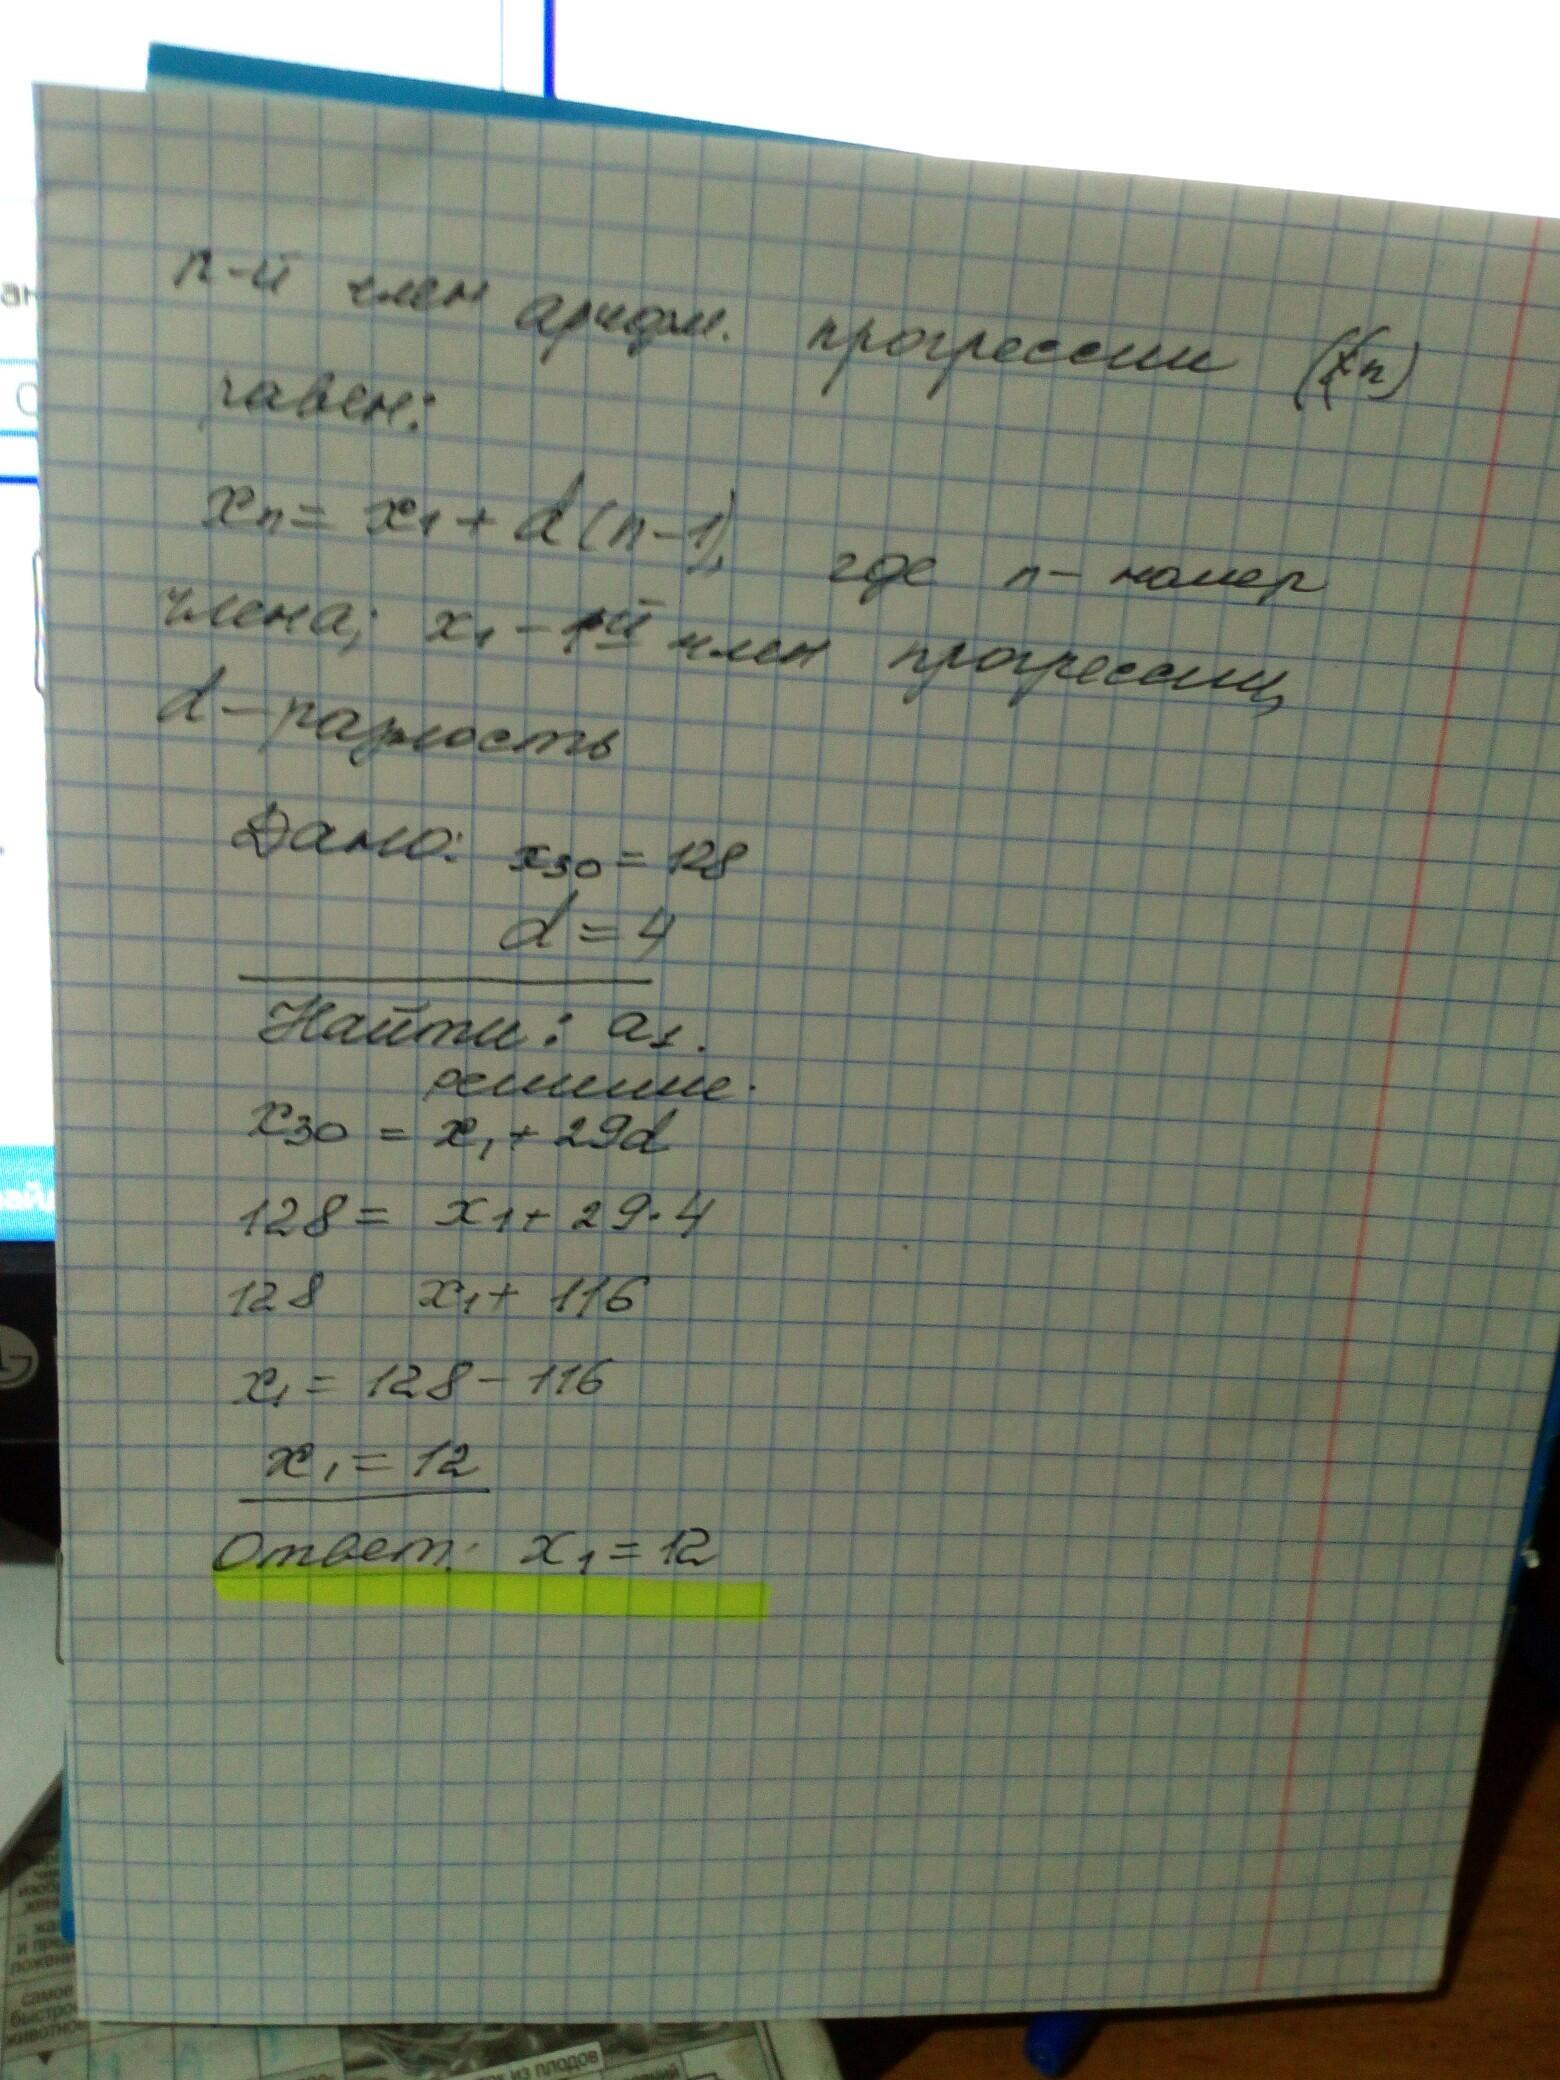 n-й член арифм. прогрессии (xn)
равен:
xn = x1 + d(n-1), где n - номер
члена; x1 - 1й член прогрессии,
d - разность
Дано: x30 = 128
d = 4
Найти: a1.
решение.
x30 = x1 + 29d
128 = x1 + 29·4
128 x1 + 116
x1 = 128 - 116
x1 = 12
Ответ: x1 = 12
самое
быстрое
животное
из плодов